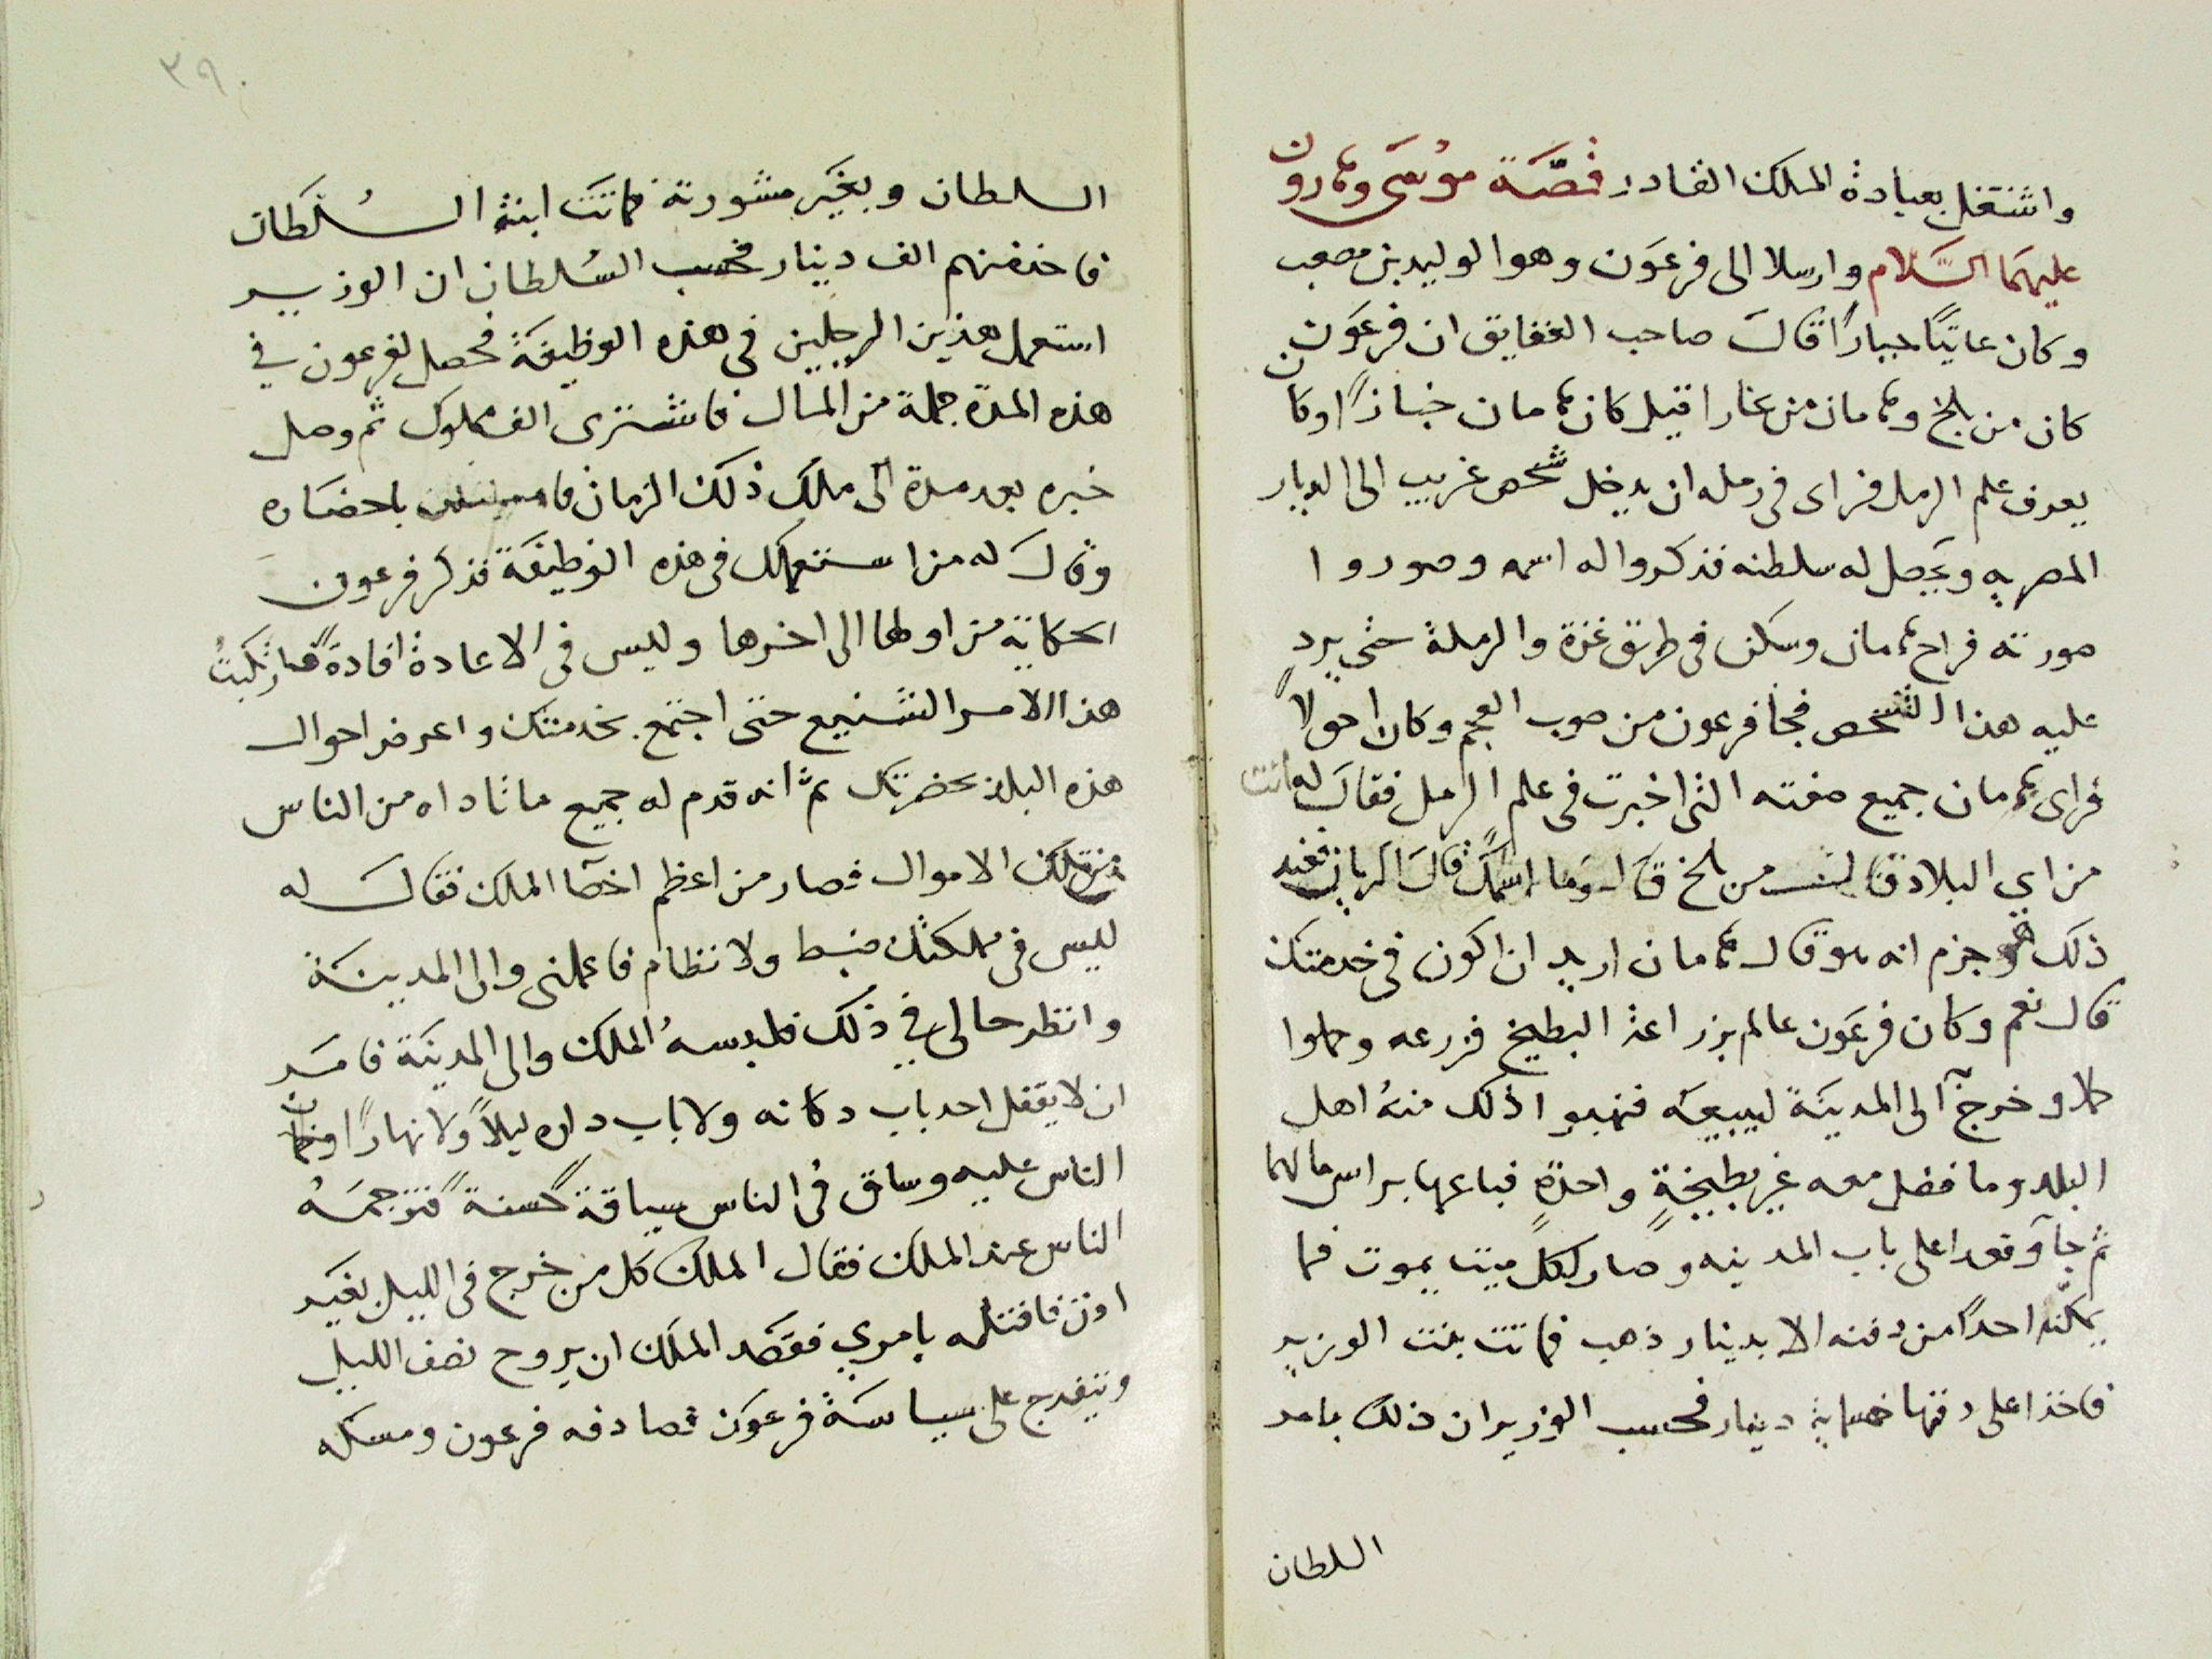 واشتغل بعبادة الملك القادر قصّة موسى وهارون
عليهما السّلام وارسلا الى فرعون وهو الوليد بن مصعب
وكان عاتيًا جبارًا قال صاحب الحقايق ان فرعون
كان من بلخ وهامان من بخارا قيل كان هامان خبازًا وكان
يعرف علم الرمل فراى فى رمله ان يدخل شخص غريب الى الديار
المصريه ويحصل له سلطنه فذكروا له اسمه وصوروا
صورته فراح هامان وسكن فى طريق غزة والرملة حتى يرد
عليه هذا الشخص فجا فرعون من صوب العجم وكان احولًا
فراى هامان جميع صفته التى اخبرت فى علم الرمل فقال له انت
من اي البلاد قال من بلخ قال وما اسمك قال الريان
ذلك جزم انه هو قال هامان اريد ان اكون فى خدمتك
قال نعم وكان فرعون عالم بزراعة البطيخ فزرعه وحملوا
حملا وخرج الى المدينة ليبيعه فنهبوا ذلك منه اهل
البلد وما فضل معه غير بطيخةٍ واحدةٍ فباعها براس مالهما
ثم جآ وقعدا على باب المدينه وصار لكل ميت يموت فما
يمكّنه احدًا من دفنه الا بدينار ذهب فماتت بنت الوزير
فاخذا على دفنها خمسماية دينار فحسب الوزير ان ذلك بامر
السلطان
٣٩٠
السلطان وبغير مشورته فماتت ابنة السلطان
فاخذ منهم الف دينار فحسب السلطان ان الوزير
استعمل هذين الرجلين فى هذه الوظيفة فحصل لفرعون في
هذه المدّة جملة من المال فاشترى الف مملوك ثم وصل
خبره بعد مدة الى ملك ذلك الزمان باحضاره
وقال له من استعملك فى هذه الوظيفة فذكر فرعون
الحكاية من اولها الى اخرها وليس فى الاعادة افادة فارتكبتُ
هذا الامر الشنيع حتى اجتمع بخدمتك واعرض احوال
هذه البلاد بحضرتك ثم انه قدم له جميع ما ناداه من الناس
من تلك الاموال فصار من اعظم اخصّا الملك فقال له
ليس فى مملكتك ضبط ولا نظام فاعملنى والى المدينة
وانظر حالى في ذلك فلبسه الملك والى المدينة فامر
ان لا يقفل احد باب دكانه ولا باب داره ليلًا ولا نهارًا
الناس عليه وساق فى الناس سياقة حسنة فترجمه
الناس عند الملك فقال الملك كل من خرج فى الليل بغير
اذن فاقتله بامري فقصد الملك ان يروح نصف الليل
ويتفرج على سياسة فرعون فصادفه فرعون ومسكه